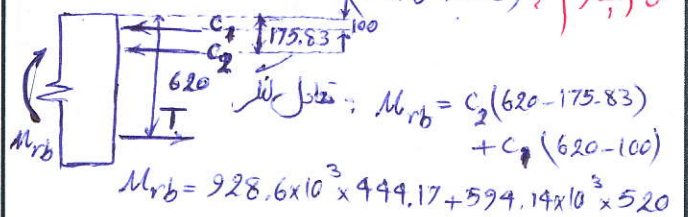 C₁
100
175.83
C₂
620
T
M_rb
تعادل لنگر : M_rb = C₂(620-175.83)
+ C₁(620-100)
M_rb = 928.6×10³×444.17+594.14×10³×520